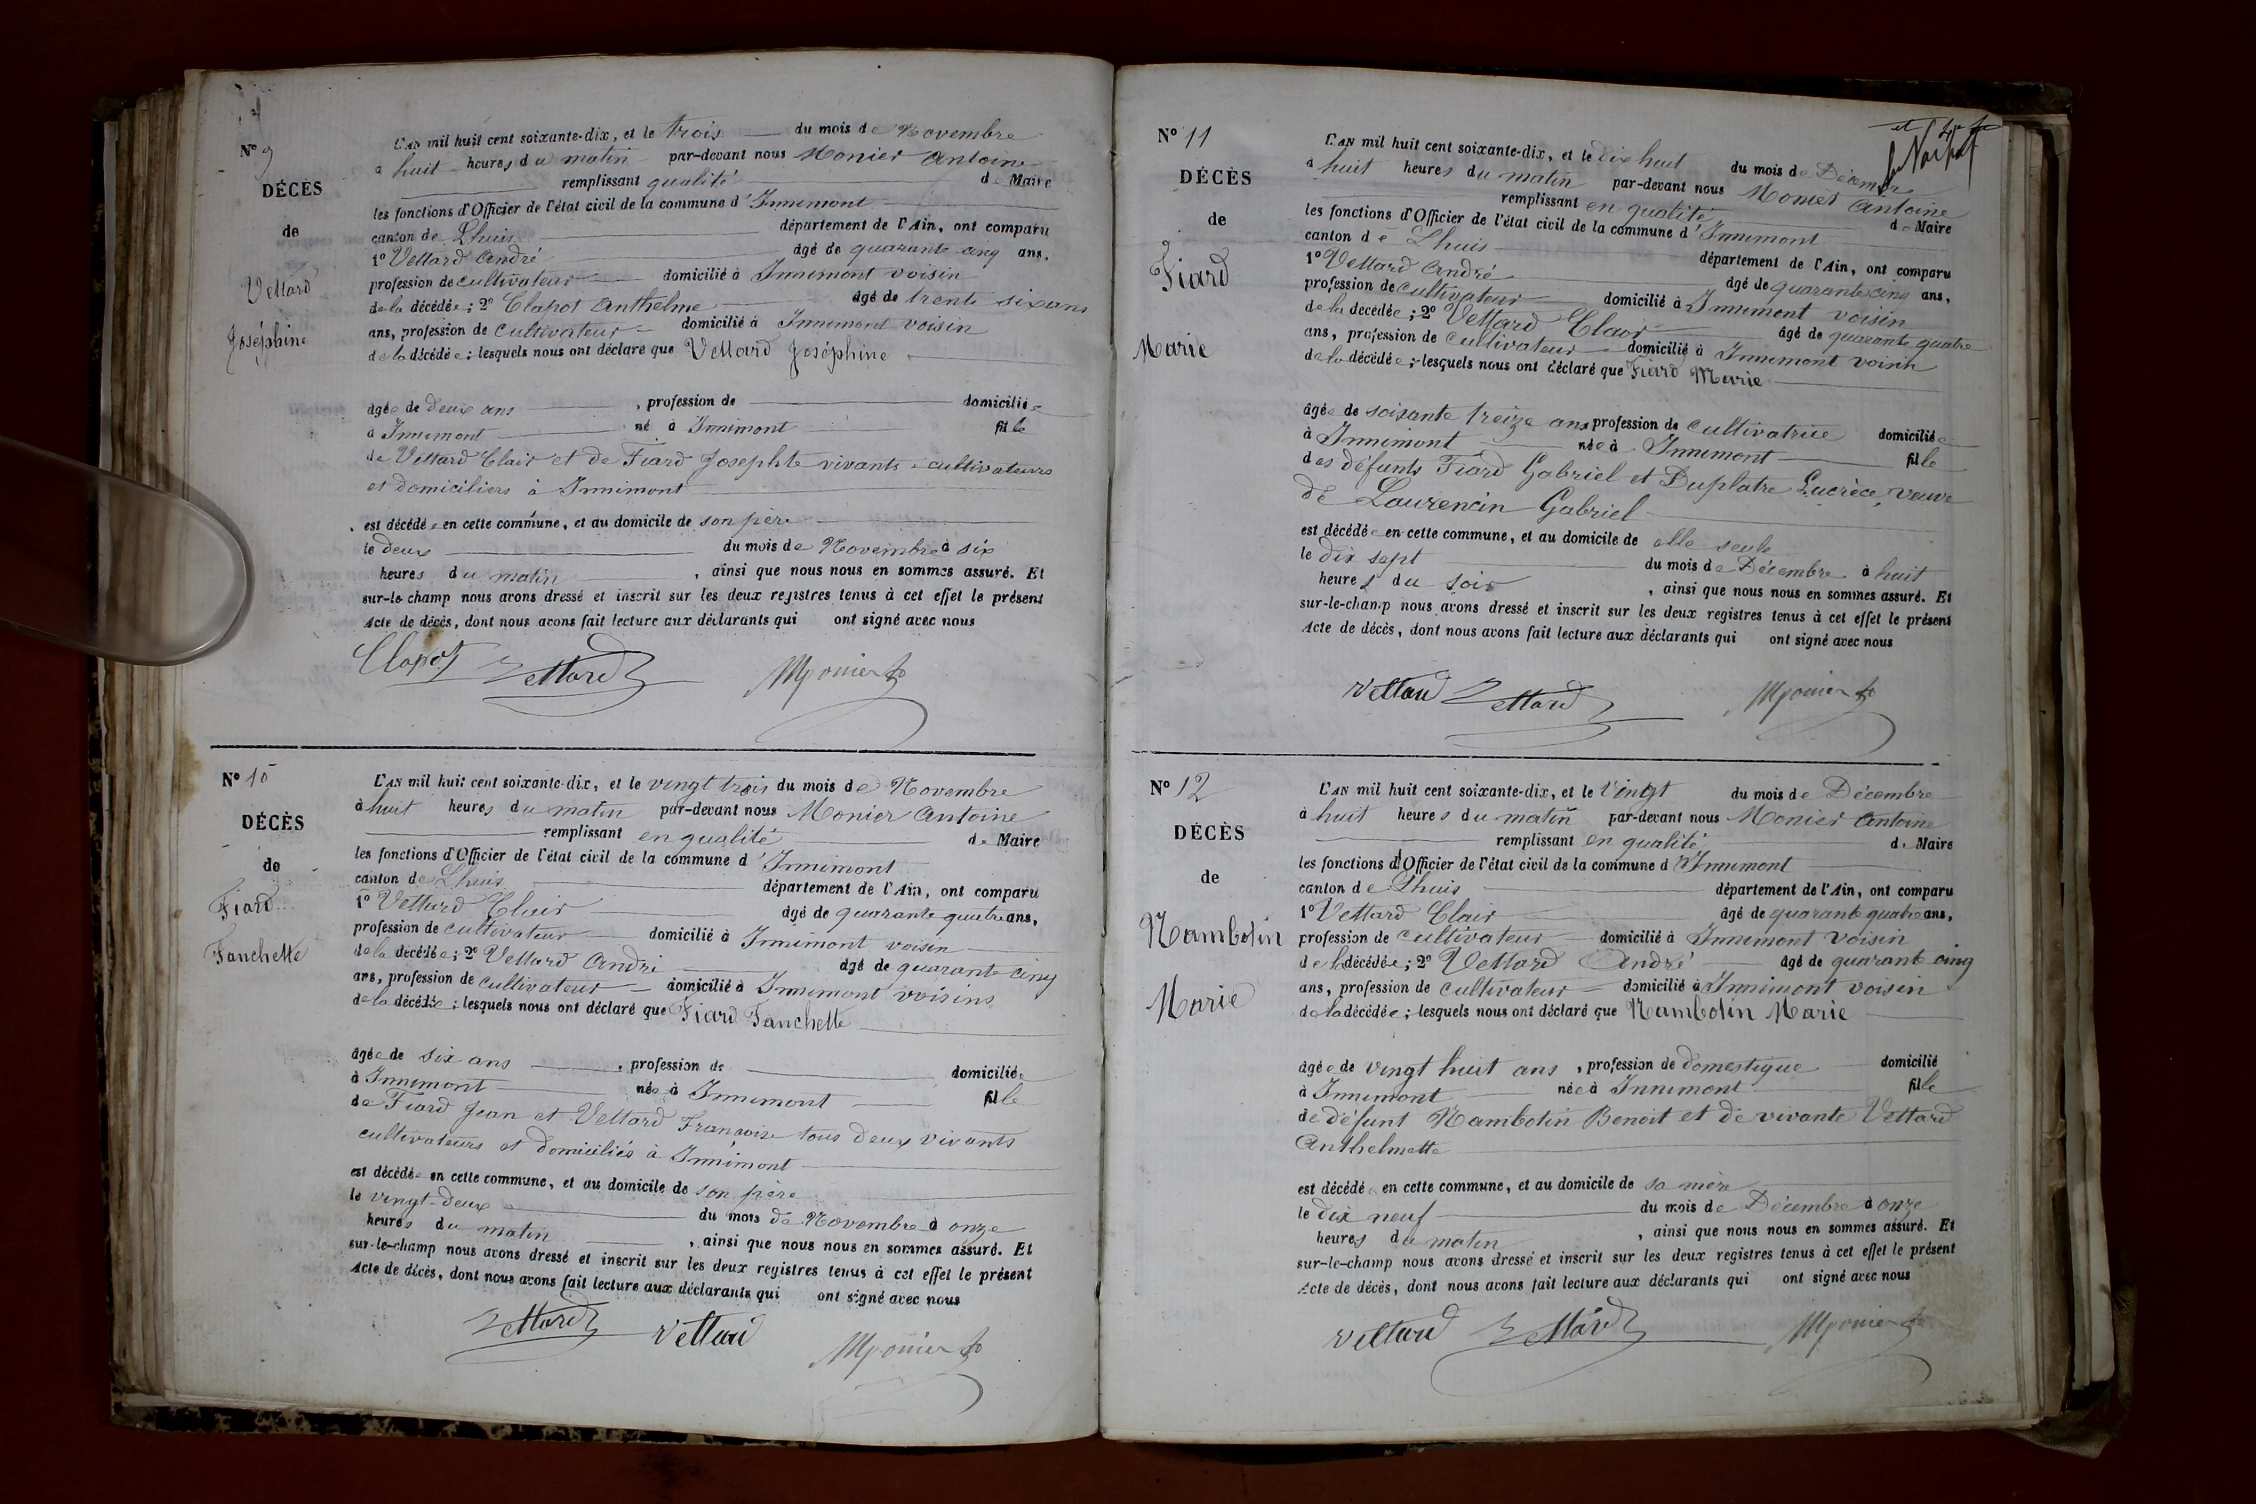 Nº 9
DÉCÈS
de
Vettard
Joséphine
L'AN mil huit cent soixante-dix, et le trois du mois de Novembre
à huit heures du matin par-devant nous Monier Antoine
remplissant qualité de Maire
les fonctions d'Officier de l'état civil de la commune d'Innimont
canton de Lhuis département de l'Ain, ont comparu
1º Vettard André âgé de quarante cinq ans,
profession de cultivateur domicilié à Innimont voisin
de la décédée; 2º Clapot Anthelme âgé de trente six ans
ans, profession de cultivateur domicilié à Innimont voisin
de la décédée; lesquels nous ont déclaré que Vettard Joséphine
âgée de deux ans, profession de domiciliée
à Innimont né à Innimont fille
de Vettard Clair et de Fiard Josephte vivants cultivateurs
et domiciliers à Innimont
est décédée en cette commune, et au domicile de son père
le deux du mois de Novembre à six
heures du matin, ainsi que nous nous en sommes assuré. Et
sur-le-champ nous avons dressé et inscrit sur les deux registres tenus à cet effet le présent
Acte de décès, dont nous avons fait lecture aux déclarants qui ont signé avec nous
Clapot Vettard Monier
Nº 10
DÉCÈS
de
Fiard
Fanchette
L'AN mil huit cent soixante-dix, et le vingt trois du mois de Novembre
à huit heures du matin par-devant nous Monier Antoine
remplissant en qualité de Maire
les fonctions d'Officier de l'état civil de la commune d'Innimont
canton de Lhuis département de l'Ain, ont comparu
1º Vettard Clair âgé de quarante quatre ans,
profession de cultivateur domicilié à Innimont voisin
de la décédée; 2º Vettard André âgé de quarante cinq
ans, profession de cultivateur domicilié à Innimont voisins
de la décédée; lesquels nous ont déclaré que Fiard Fanchette
âgée de six ans, profession de domiciliée
à Innimont née à Innimont fille
de Fiard Jean et Vettard Francoise tous deux vivants
cultivateurs et domiciliés à Innimont
est décédée en cette commune, et au domicile de son père
le vingt-deux du mois de Novembre à onze
heures du matin, ainsi que nous nous en sommes assuré. Et
sur-le-champ nous avons dressé et inscrit sur les deux registres tenus à cet effet le présent
Acte de décès, dont nous avons fait lecture aux déclarants qui ont signé avec nous
Vettard Vettard Monier
Nº 11
DÉCÈS
de
Fiard
Marie
L'AN mil huit cent soixante-dix, et le dix huit du mois de Décembre
à huit heures du matin par-devant nous Monier Antoine
remplissant en qualité de Maire
les fonctions d'Officier de l'état civil de la commune d'Innimont
canton de Lhuis département de l'Ain, ont comparu
1º Vettard André âgé de quarante cinq ans,
profession de cultivateur domicilié à Innimont voisin
de la décédée; 2º Vettard Clair âgé de quarante quatre
ans, profession de cultivateur domicilié à Innimont voisin
de la décédée; lesquels nous ont déclaré que Fiard Marie
âgée de soixante treize ans profession de cultivatrice domiciliée
à Innimont née à Innimont fille
des défunts Fiard Gabriel et Duplatre Lucrèce, veuve
de Laurencin Gabriel
est décédée en cette commune, et au domicile de elle seule
le dix sept du mois de Décembre à huit
heures du soir, ainsi que nous nous en sommes assuré. Et
sur-le-champ nous avons dressé et inscrit sur les deux registres tenus à cet effet le présent
Acte de décès, dont nous avons fait lecture aux déclarants qui ont signé avec nous
Vettard Vettard Monier
Nº 12
DÉCÈS
de
Nambotin
Marie
L'AN mil huit cent soixante-dix, et le vingt du mois de Décembre
à huit heures du matin par-devant nous Monier Antoine
remplissant en qualité de Maire
les fonctions d'Officier de l'état civil de la commune d'Innimont
canton de Lhuis département de l'Ain, ont comparu
1º Vettard Clair âgé de quarante quatre ans,
profession de cultivateur domicilié à Innimont voisin
de la décédée; 2º Vettard André âgé de quarante cinq
ans, profession de cultivateur domicilié à Innimont voisin
de la décédée; lesquels nous ont déclaré que Nambotin Marie
âgée de vingt huit ans, profession de domestique domicilié
à Innimont née à Innimont fille
de défunt Nambotin Benoit et de vivante Vettard
Anthelmette
est décédé en cette commune, et au domicile de sa mère
le dix neuf du mois de Décembre à onze
heures du matin, ainsi que nous nous en sommes assuré. Et
sur-le-champ nous avons dressé et inscrit sur les deux registres tenus à cet effet le présent
Acte de décès, dont nous avons fait lecture aux déclarants qui ont signé avec nous
Vettard Vettard Monier